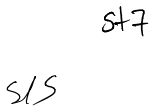 S+7
S/S